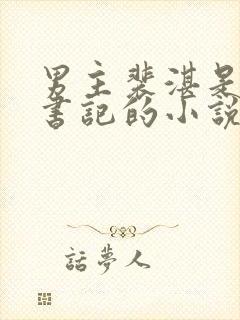 男主裴湛是
書記的小說
話夢人